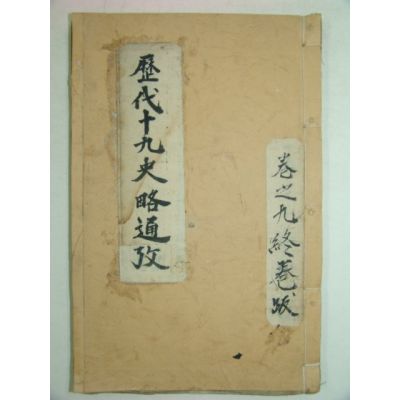 歷代十九史略通攷
卷之九終卷跋